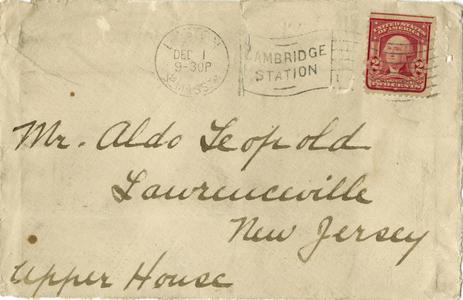 DEC 1
9-30P
MASS.
CAMBRIDGE
STATION
UNITED STATES OF AMERICA
2 2
TWO CENTS
Mr. Aldo Leopold
Lawrenceville
New Jersey
Upper House